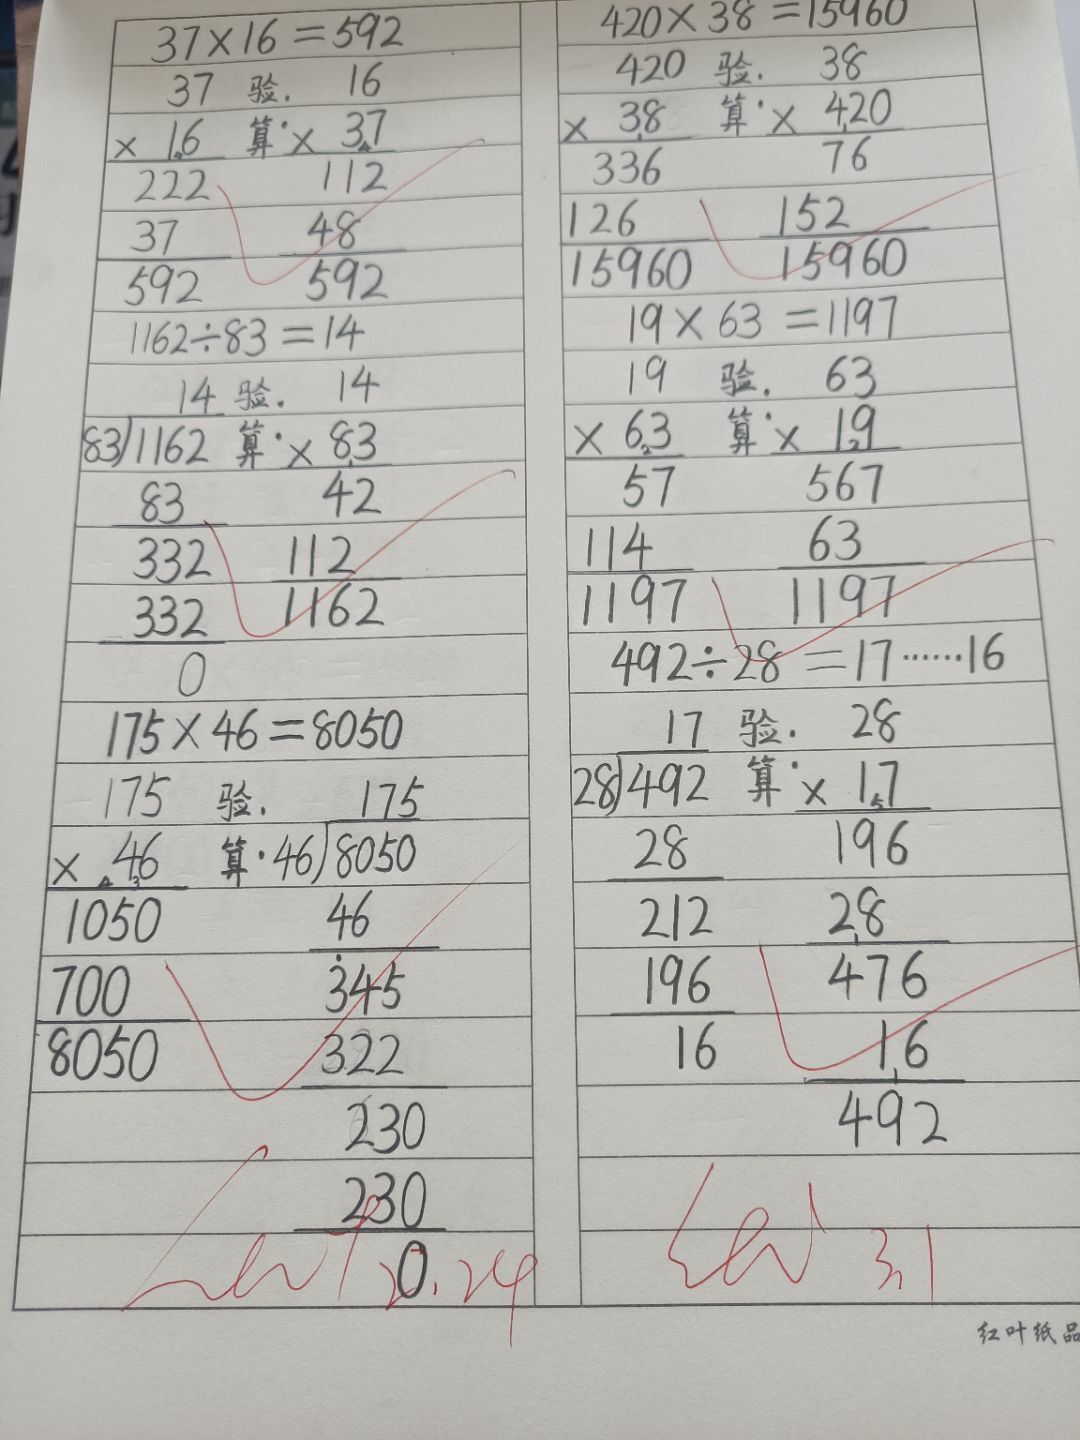 37×16=592
37 验. 16
× 16 算· × 37
222 112
37 48
592 592
1162÷83=14
14 验. 14
83)1162 算· × 83
83 42
332 112
332 1162
0
175×46=8050
175 验. 175
× 46 算· 46)8050
1050 46
700 345
8050 322
230
230
0
2.24
420×38=15960
420 验. 38
× 38 算· × 420
336 76
126 152
15960 15960
19×63=1197
19 验. 63
× 63 算· × 19
57 567
114 63
1197 1197
492÷28=17……16
17 验. 28
28)492 算· × 17
28 196
212 28
196 476
16 16
492
3.1
红叶纸品